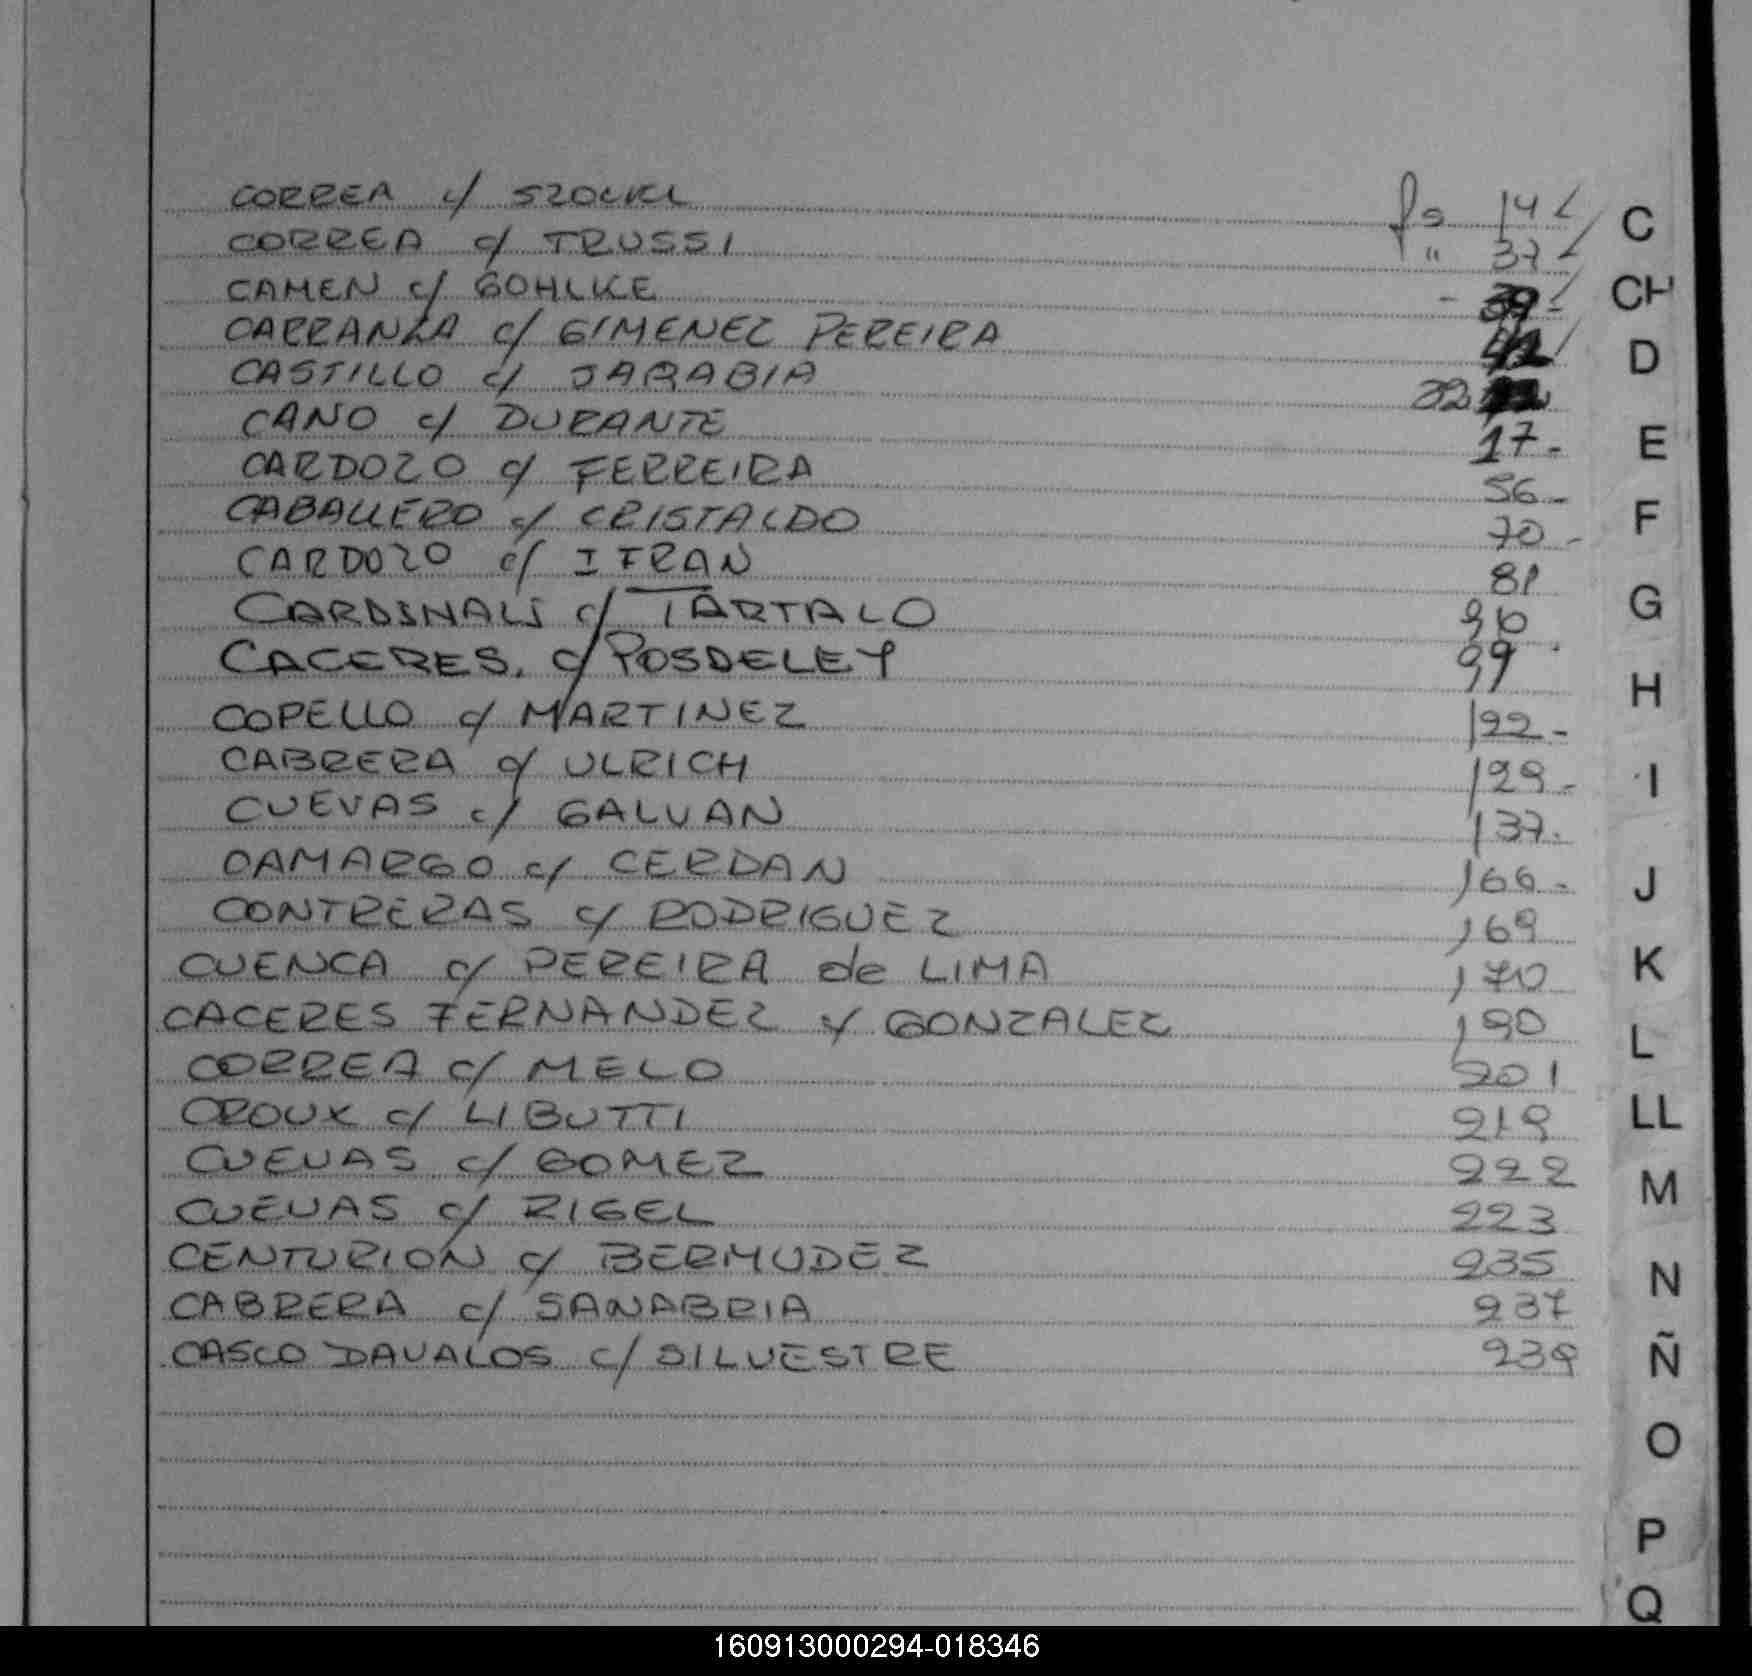 CORREA c/ SZOCKL fs 14
CORREA c/ TRUSSI " 37
CAMEN c/ GOHLKE - 39
CARRANZA c/ GIMENEZ PEREIRA 42
CASTILLO c/ SARABIA 32
CANO c/ DURANTE 17-
CARDOZO c/ FERREIRA 56-
CABALLERO c/ CRISTALDO 70-
CARDOZO c/ IFRAN 81
CARDINALI c/ TARTALO 96
CACERES. c/ POSDELEY 99
COPELLO c/ MARTINEZ 122-
CABRERA c/ ULRICH 129-
CUEVAS c/ GALVAN 137-
CAMARGO c/ CERDAN 166-
CONTRERAS c/ RODRIGUEZ 169
CUENCA c/ PEREIRA de LIMA 170
CACERES FERNANDEZ c/ GONZALEZ 190
CORREA c/ MELO 201
CROUX c/ LIBUTTI 219
CUEVAS c/ GOMEZ 222
CUEVAS c/ RIGEL 223
CENTURION c/ BERMUDEZ 235
CABRERA c/ SANABRIA 237
CASCO DAVALOS c/ SILVESTRE 239
C
CH
D
E
F
G
H
I
J
K
L
LL
M
N
Ñ
O
P
Q
160913000294-018346